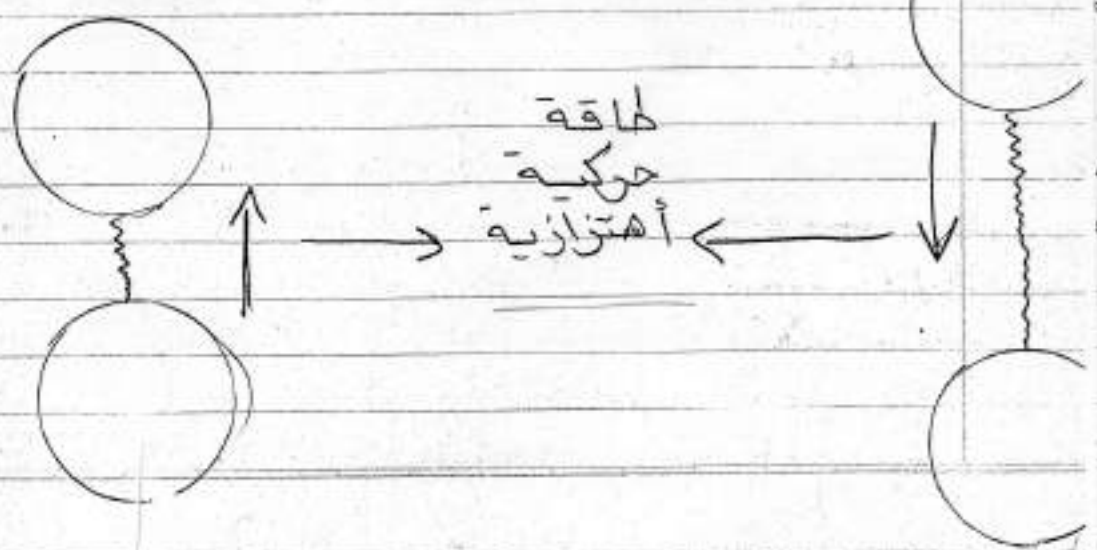 طاقة
حركية
أهتزازية